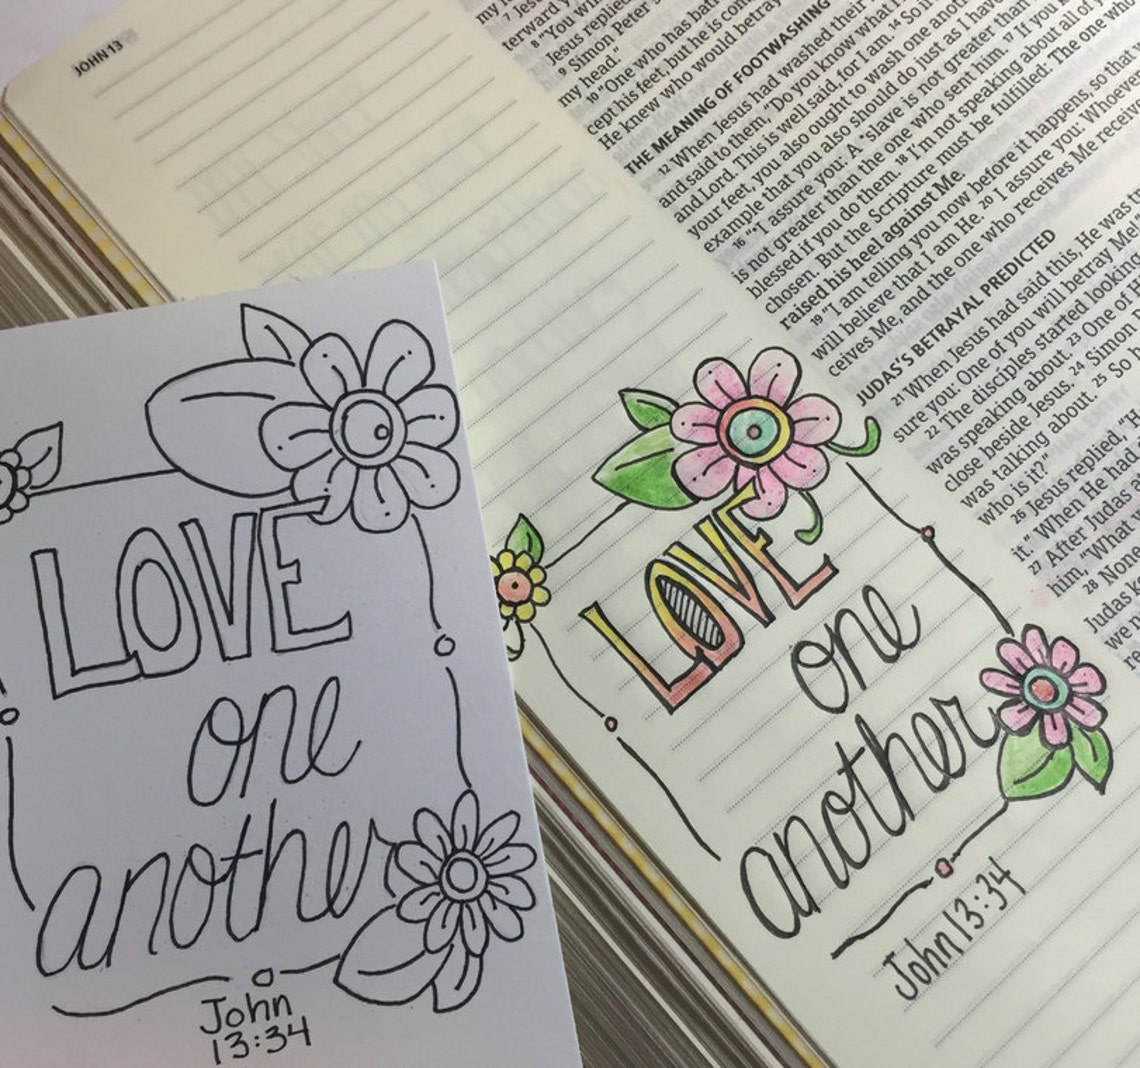 JOHN 13
my
7
terward y
8 "You wi
Jesus replied
9 Simon Peter s
my head."
10 "One who has bath
cept his feet, but he is comp
He knew who would betray
THE MEANING OF FOOTWASHING
12 When Jesus had washed their
and said to them, "Do you know what I
and Lord. This is well said, for I am. 14 So i
your feet, you also ought to wash one anoth
example that you also should do just as I hav
16 "I assure you: A slave is not greater than
is not greater than the one who sent him. 17 If you k
blessed if you do them. 18 I'm not speaking about all of y
chosen. But the Scripture must be fulfilled: The one who
raised his heel against Me.
19 "I am telling you now before it happens, so that
will believe that I am He. 20 I assure you: Whoever
ceives Me, and the one who receives Me receive
JUDAS'S BETRAYAL PREDICTED
21 When Jesus had said this, He was tr
sure you: One of you will betray Me!"
22 The disciples started looking
was speaking about. 23 One of
close beside Jesus. 24 Simon
was talking about. 25 So h
who is it?"
26 Jesus replied, "H
it." When He had
27 After Judas
him, "What
28 None
Judas k
we n
LOVE
one
another
John 13:34
LOVE
one
another
John
13:34